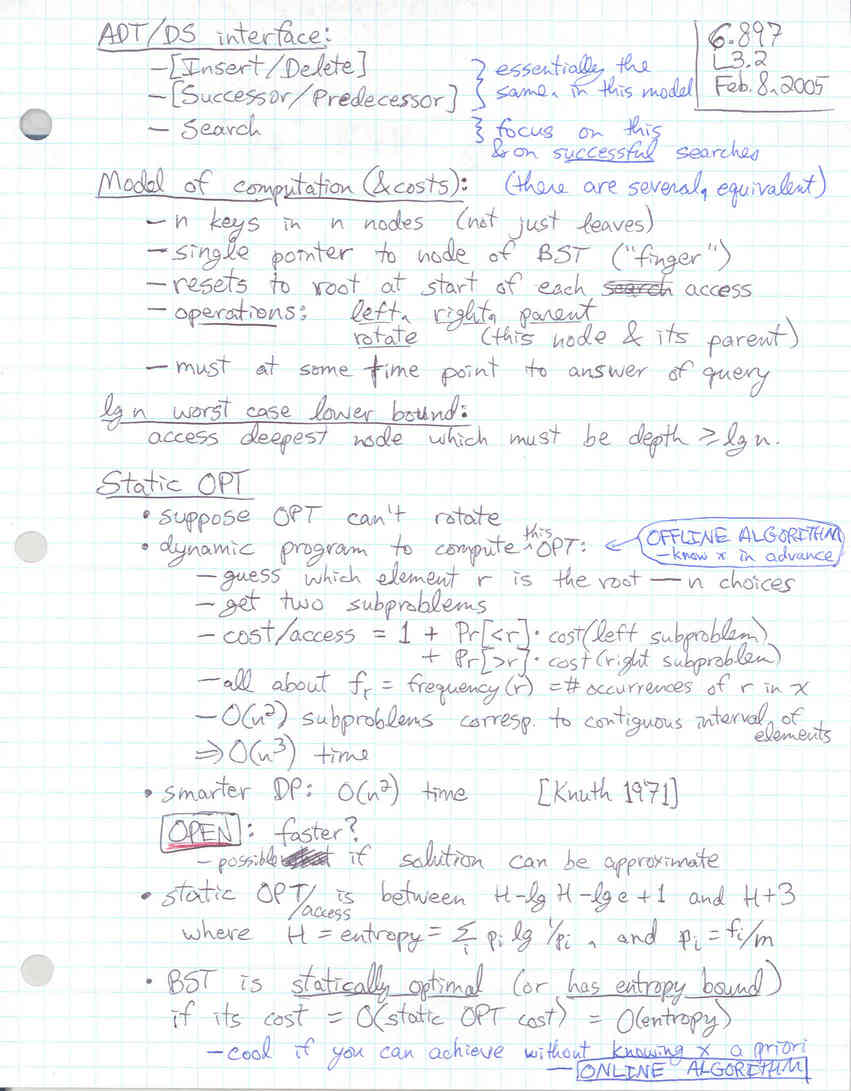 6.897
L3.2
Feb. 8, 2005
ADT/DS interface:
- [Insert/Delete]
- [Successor/Predecessor]
} essentially the
same, in this model
- Search
} focus on this
& on successful searches
Model of computation (& costs): (there are several, equivalent)
- n keys in n nodes (not just leaves)
- single pointer to node of BST ("finger")
- resets to root at start of each search access
- operations: left, right, parent
rotate (this node & its parent)
- must at some time point to answer of query
lg n worst case lower bound:
access deepest node which must be depth ≥ lg n.
Static OPT
• suppose OPT can't rotate
• dynamic program to compute this OPT: ← OFFLINE ALGORITHM
- know x in advance
- guess which element r is the root — n choices
- get two subproblems
- cost/access = 1 + Pr[<r]· cost(left subproblem)
+ Pr[>r]· cost(right subproblem)
- all about fᵣ = frequency(r) = # occurrences of r in x
- O(n²) subproblems corresp. to contiguous interval of
elements
⇒ O(n³) time
• smarter DP: O(n²) time [Knuth 1971]
OPEN: faster?
- possible if solution can be approximate
• static OPT/access is between H-lg H-lg e+1 and H+3
where H = entropy = Σᵢ pᵢ lg 1/pᵢ, and pᵢ = fᵢ/m
• BST is statically optimal (or has entropy bound)
if its cost = O(static OPT cost) = O(entropy)
- cool if you can achieve without knowing x a priori
— ONLINE ALGORITHM